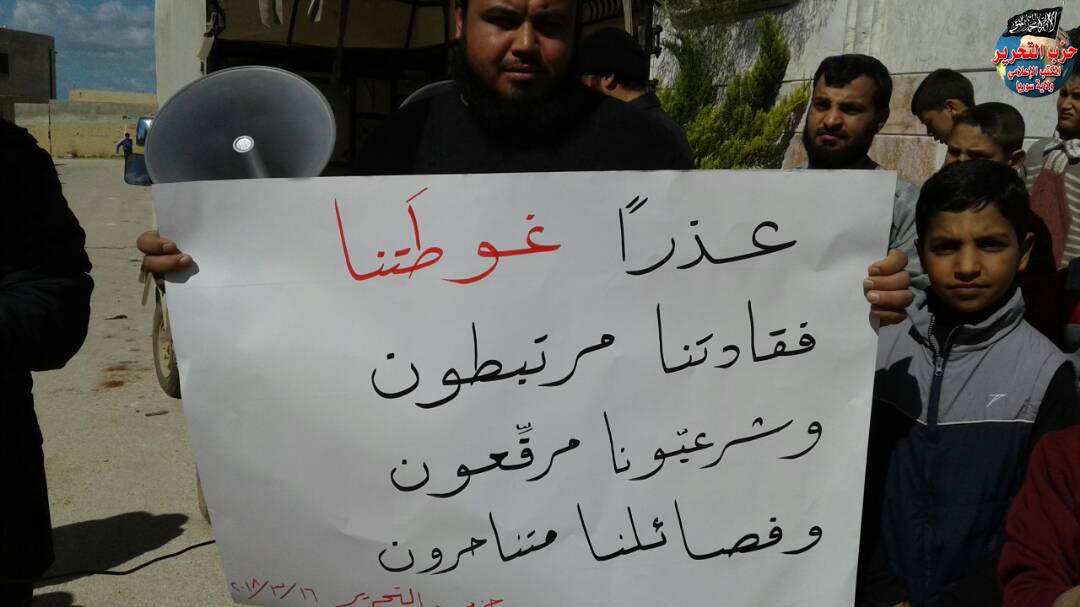 حزب التحرير
المكتب الإعلامي
ولاية سوريا
عذرًا غوطَتنا
فقادتنا مرتبطون
وشرعيّونا مرقِّعون
وفصائلنا متناحرون
حزب التحرير ٢٠١٨/٣/١٦